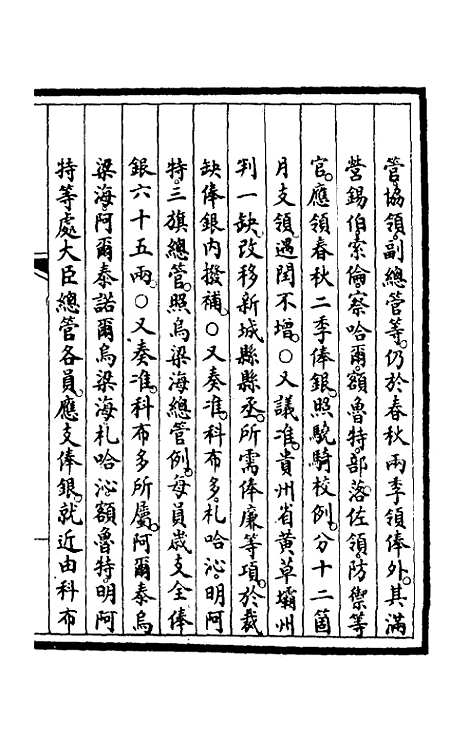 管協領副總管等。仍於春秋兩季領俸外。其滿
營錫伯索倫。察哈爾。額魯特。部落佐領。防禦等
官。應領春秋二季俸銀。照驍騎校例。分十二箇
月支領。遇閏不增。○又議准。貴州省黃草壩州
判一缺。改移新城縣縣丞。所需俸廉等項。於裁
缺俸銀內撥補。○又奏准。科布多。札哈沁。明阿
特。三旗總管。照烏梁海總管例。每員歲支全俸
銀六十五兩。○又奏准。科布多所屬。阿爾泰烏
梁海。阿爾泰諾爾烏梁海。札哈沁。額魯特。明阿
特等處大臣總管各員。應支俸銀。就近由科布